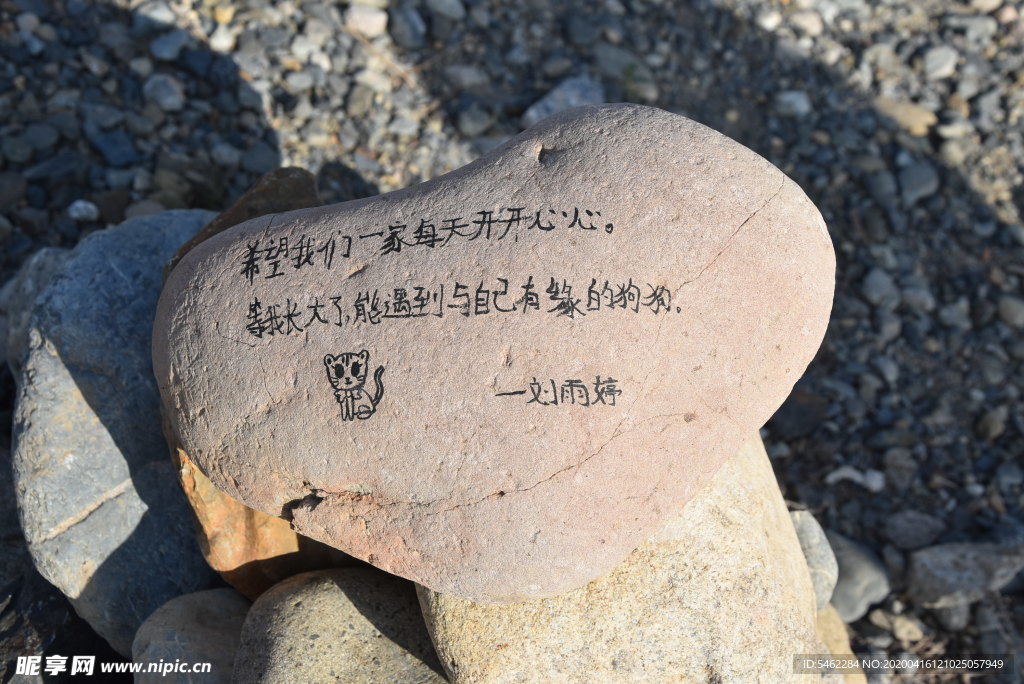 希望我们一家每天开开心心。
等我长大了,能遇到与自己有缘的狗狗.
—刘雨婷
昵享网 www.nipic.cn
ID:5462284 NO:20200416121025057949